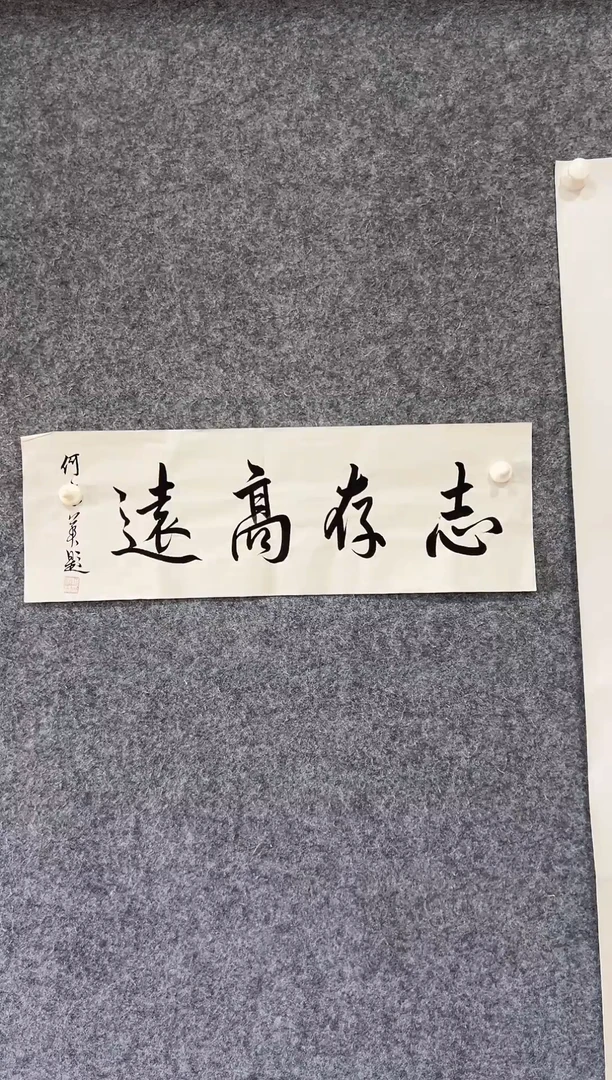 志存高遠
何 英題